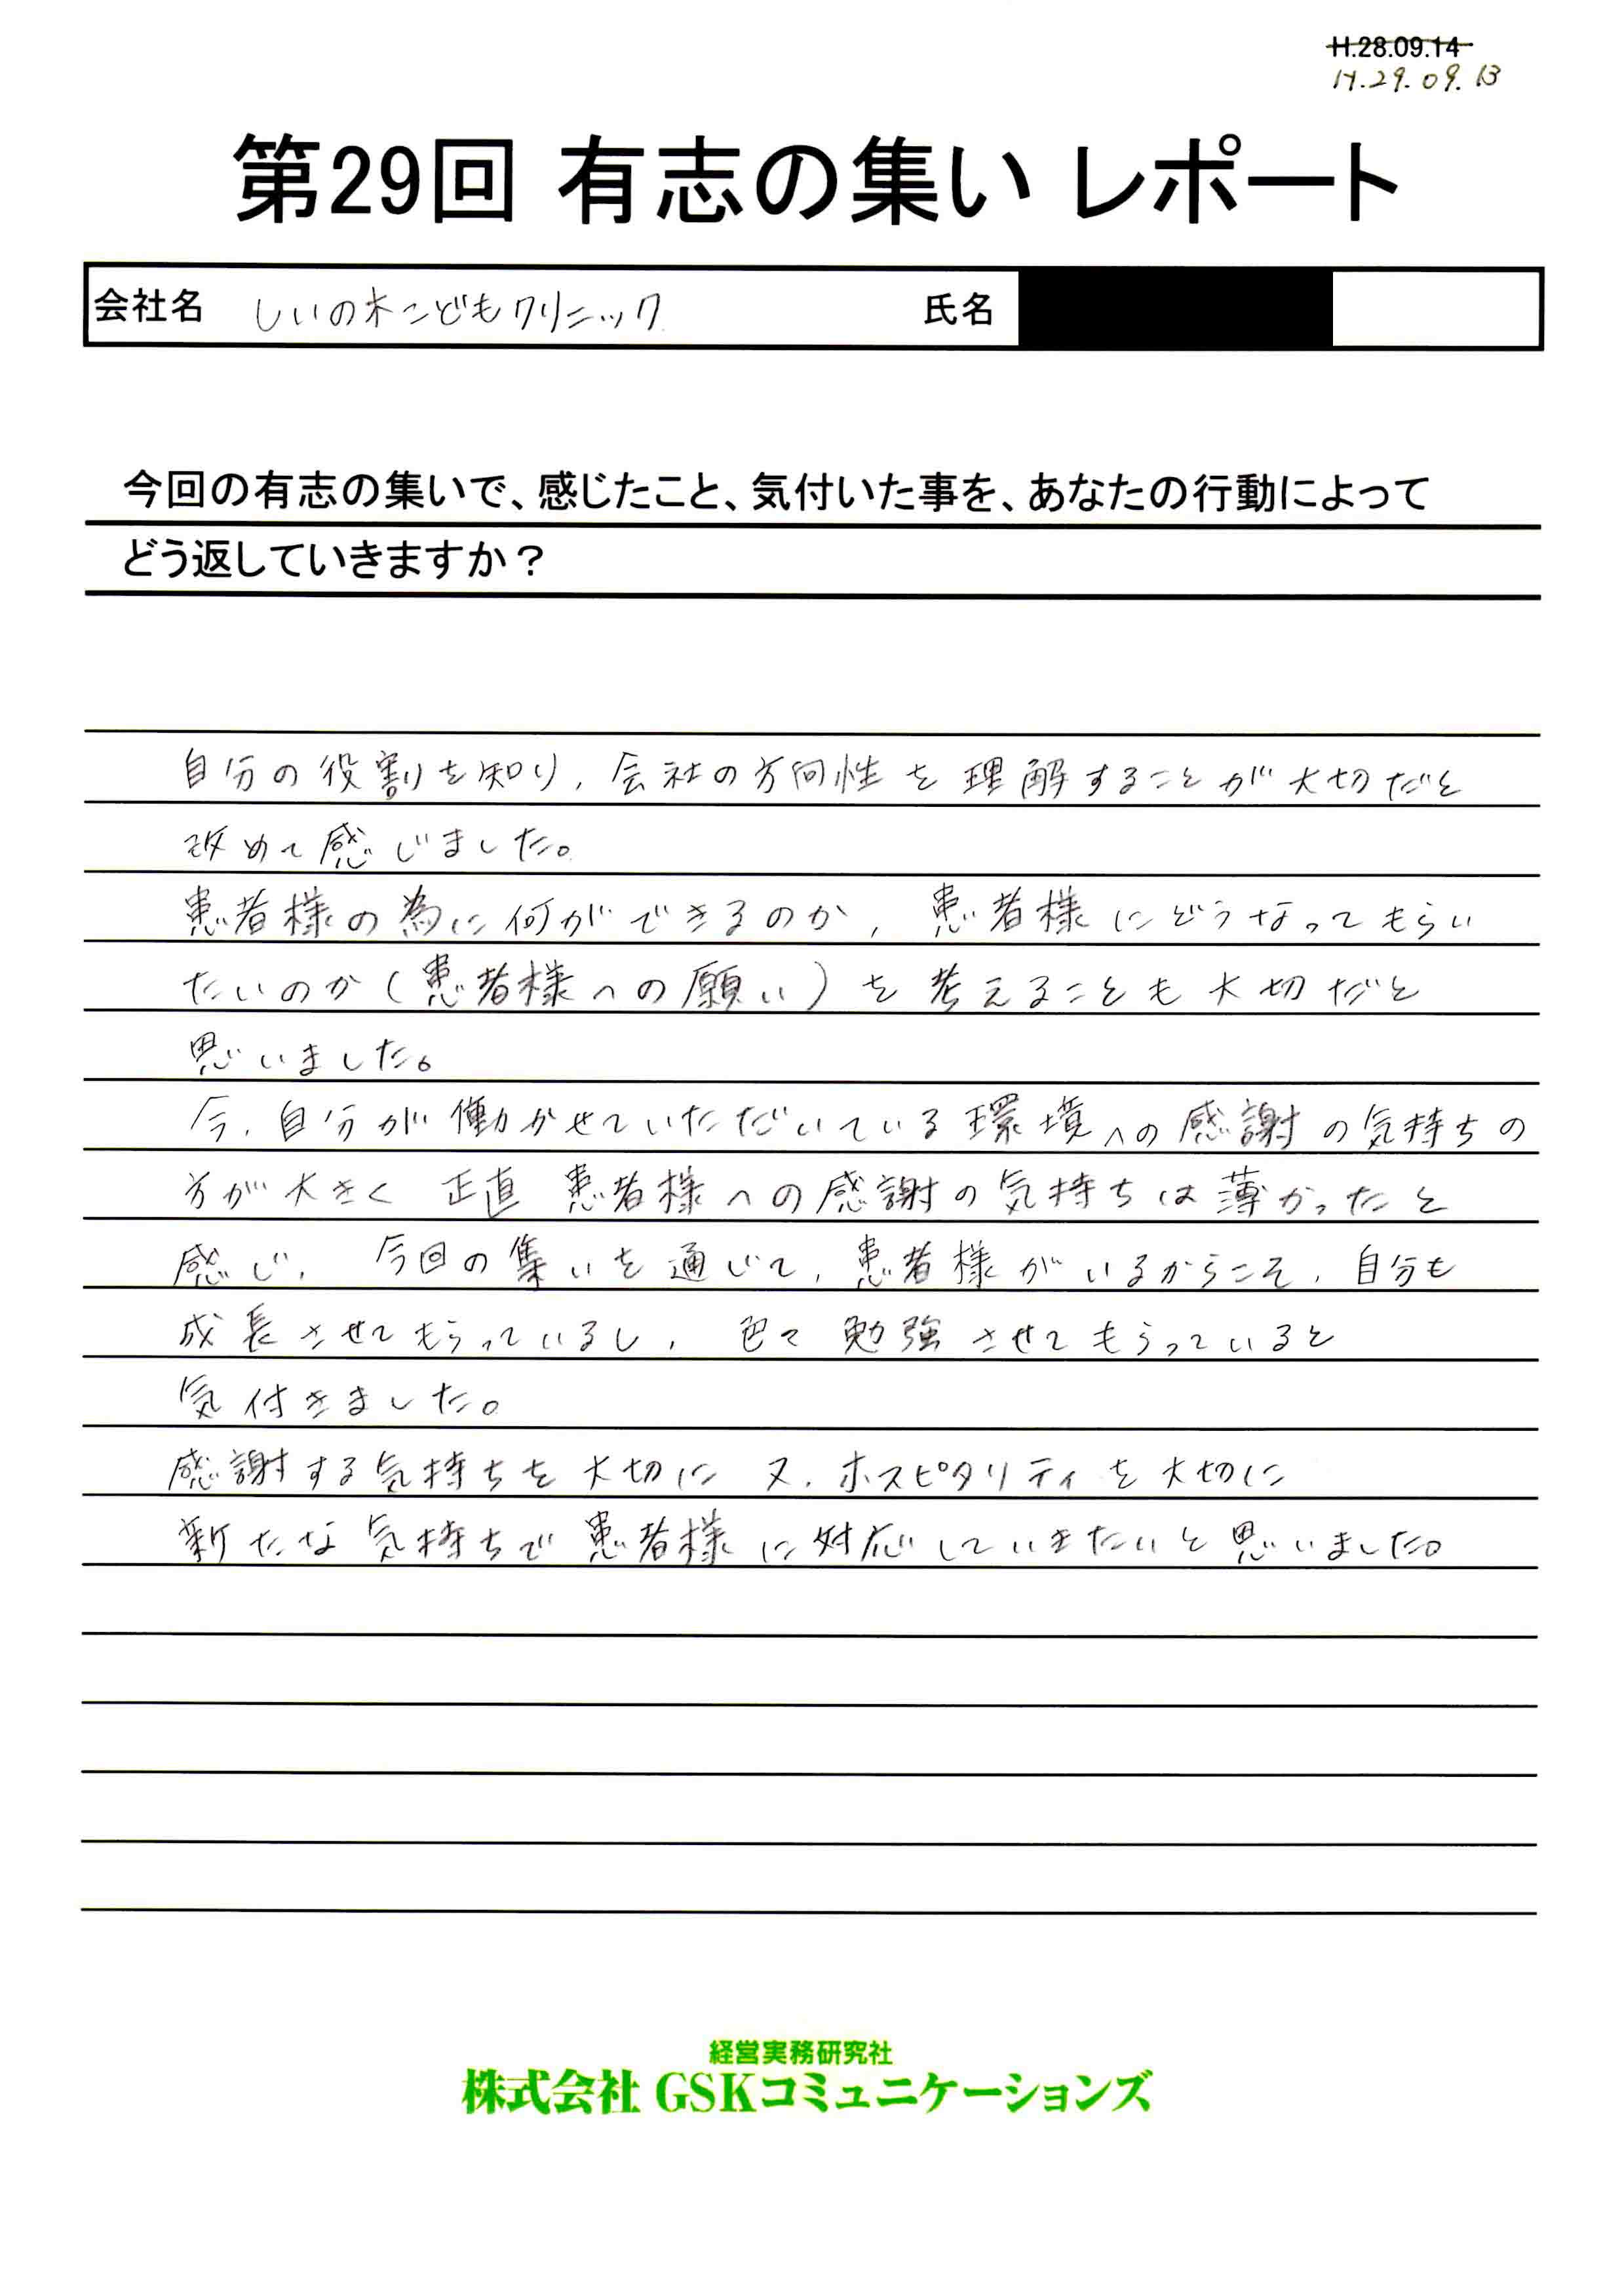 H.28.09.14
H.29.09.13
第29回 有志の集い レポート
会社名 しいの木こどもクリニック 氏名
今回の有志の集いで、感じたこと、気付いた事を、あなたの行動によって
どう返していきますか？
自分の役割を知り、会社の方向性を理解することが大切だと
改めて感じました。
患者様の為に何ができるのか、患者様にどうなってもらい
たいのか（患者様への願い）を考えることも大切だと
思いました。
今、自分が働かせていただいている環境への感謝の気持ちの
方が大きく 正直 患者様への感謝の気持ちは薄かったと
感じ、 今回の集いを通じて、患者様がいるからこそ、自分も
成長させてもらっているし、色々勉強させてもらっていると
気付きました。
感謝する気持ちを大切に 又、ホスピタリティを大切に
新たな気持ちで患者様に対応していきたいと思いました。
経営実務研究社
株式会社 GSKコミュニケーションズ